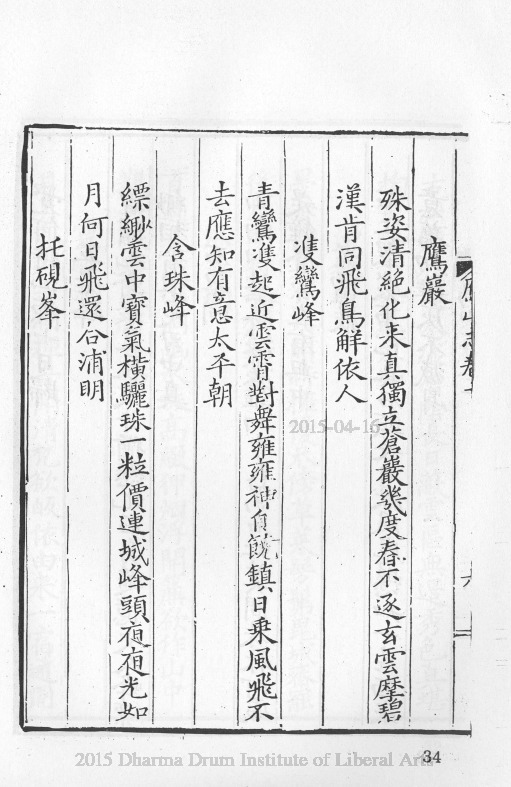 鷹巖
殊姿清絕化来真獨立蒼巖幾度春不逐玄雲摩碧
漢肯同飛鳥解依人
䨇鸞峰
青鸞䨇起近雲霄對舞雍雍神自饒鎮日乗風飛不
去應知有意太平朝
含珠峰
縹緲雲中寶氣横驪珠一粒價連城峰頭夜夜光如
月何日飛還合浦明
托硯峯
2015-04-16
34
2015 Dharma Drum Institute of Liberal Arts